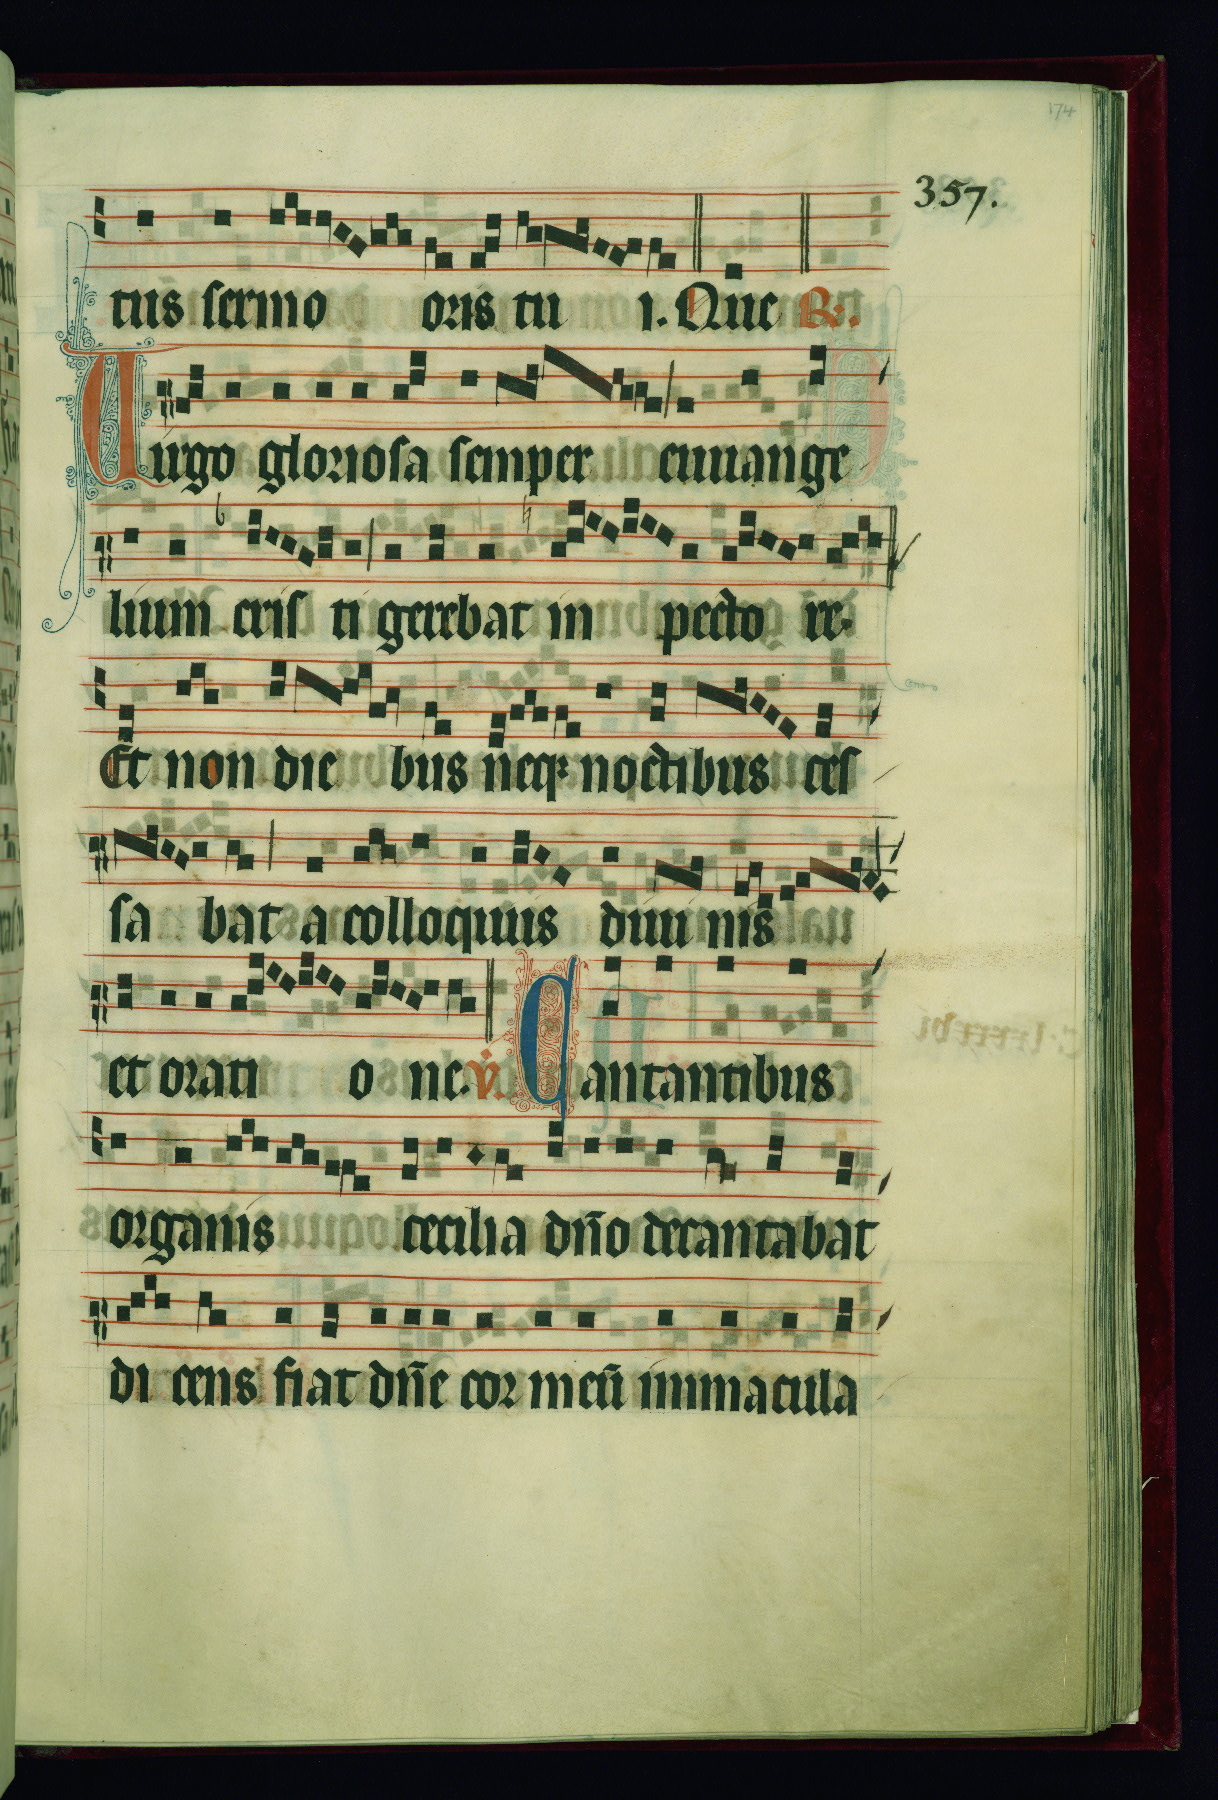 174
357.
tus sermo oris tui. Que ℟.
Uirgo gloriosa semper euuange
lium cristi gerebat in pecto re.
Et non die bus neqꝫ noctibus ces
sa bat a colloquiis diui nis
et orati o ne. v̇. Cantantibus
organis cecilia dn̄o decantabat
di cens fiat dn̄e cor meū inmacula